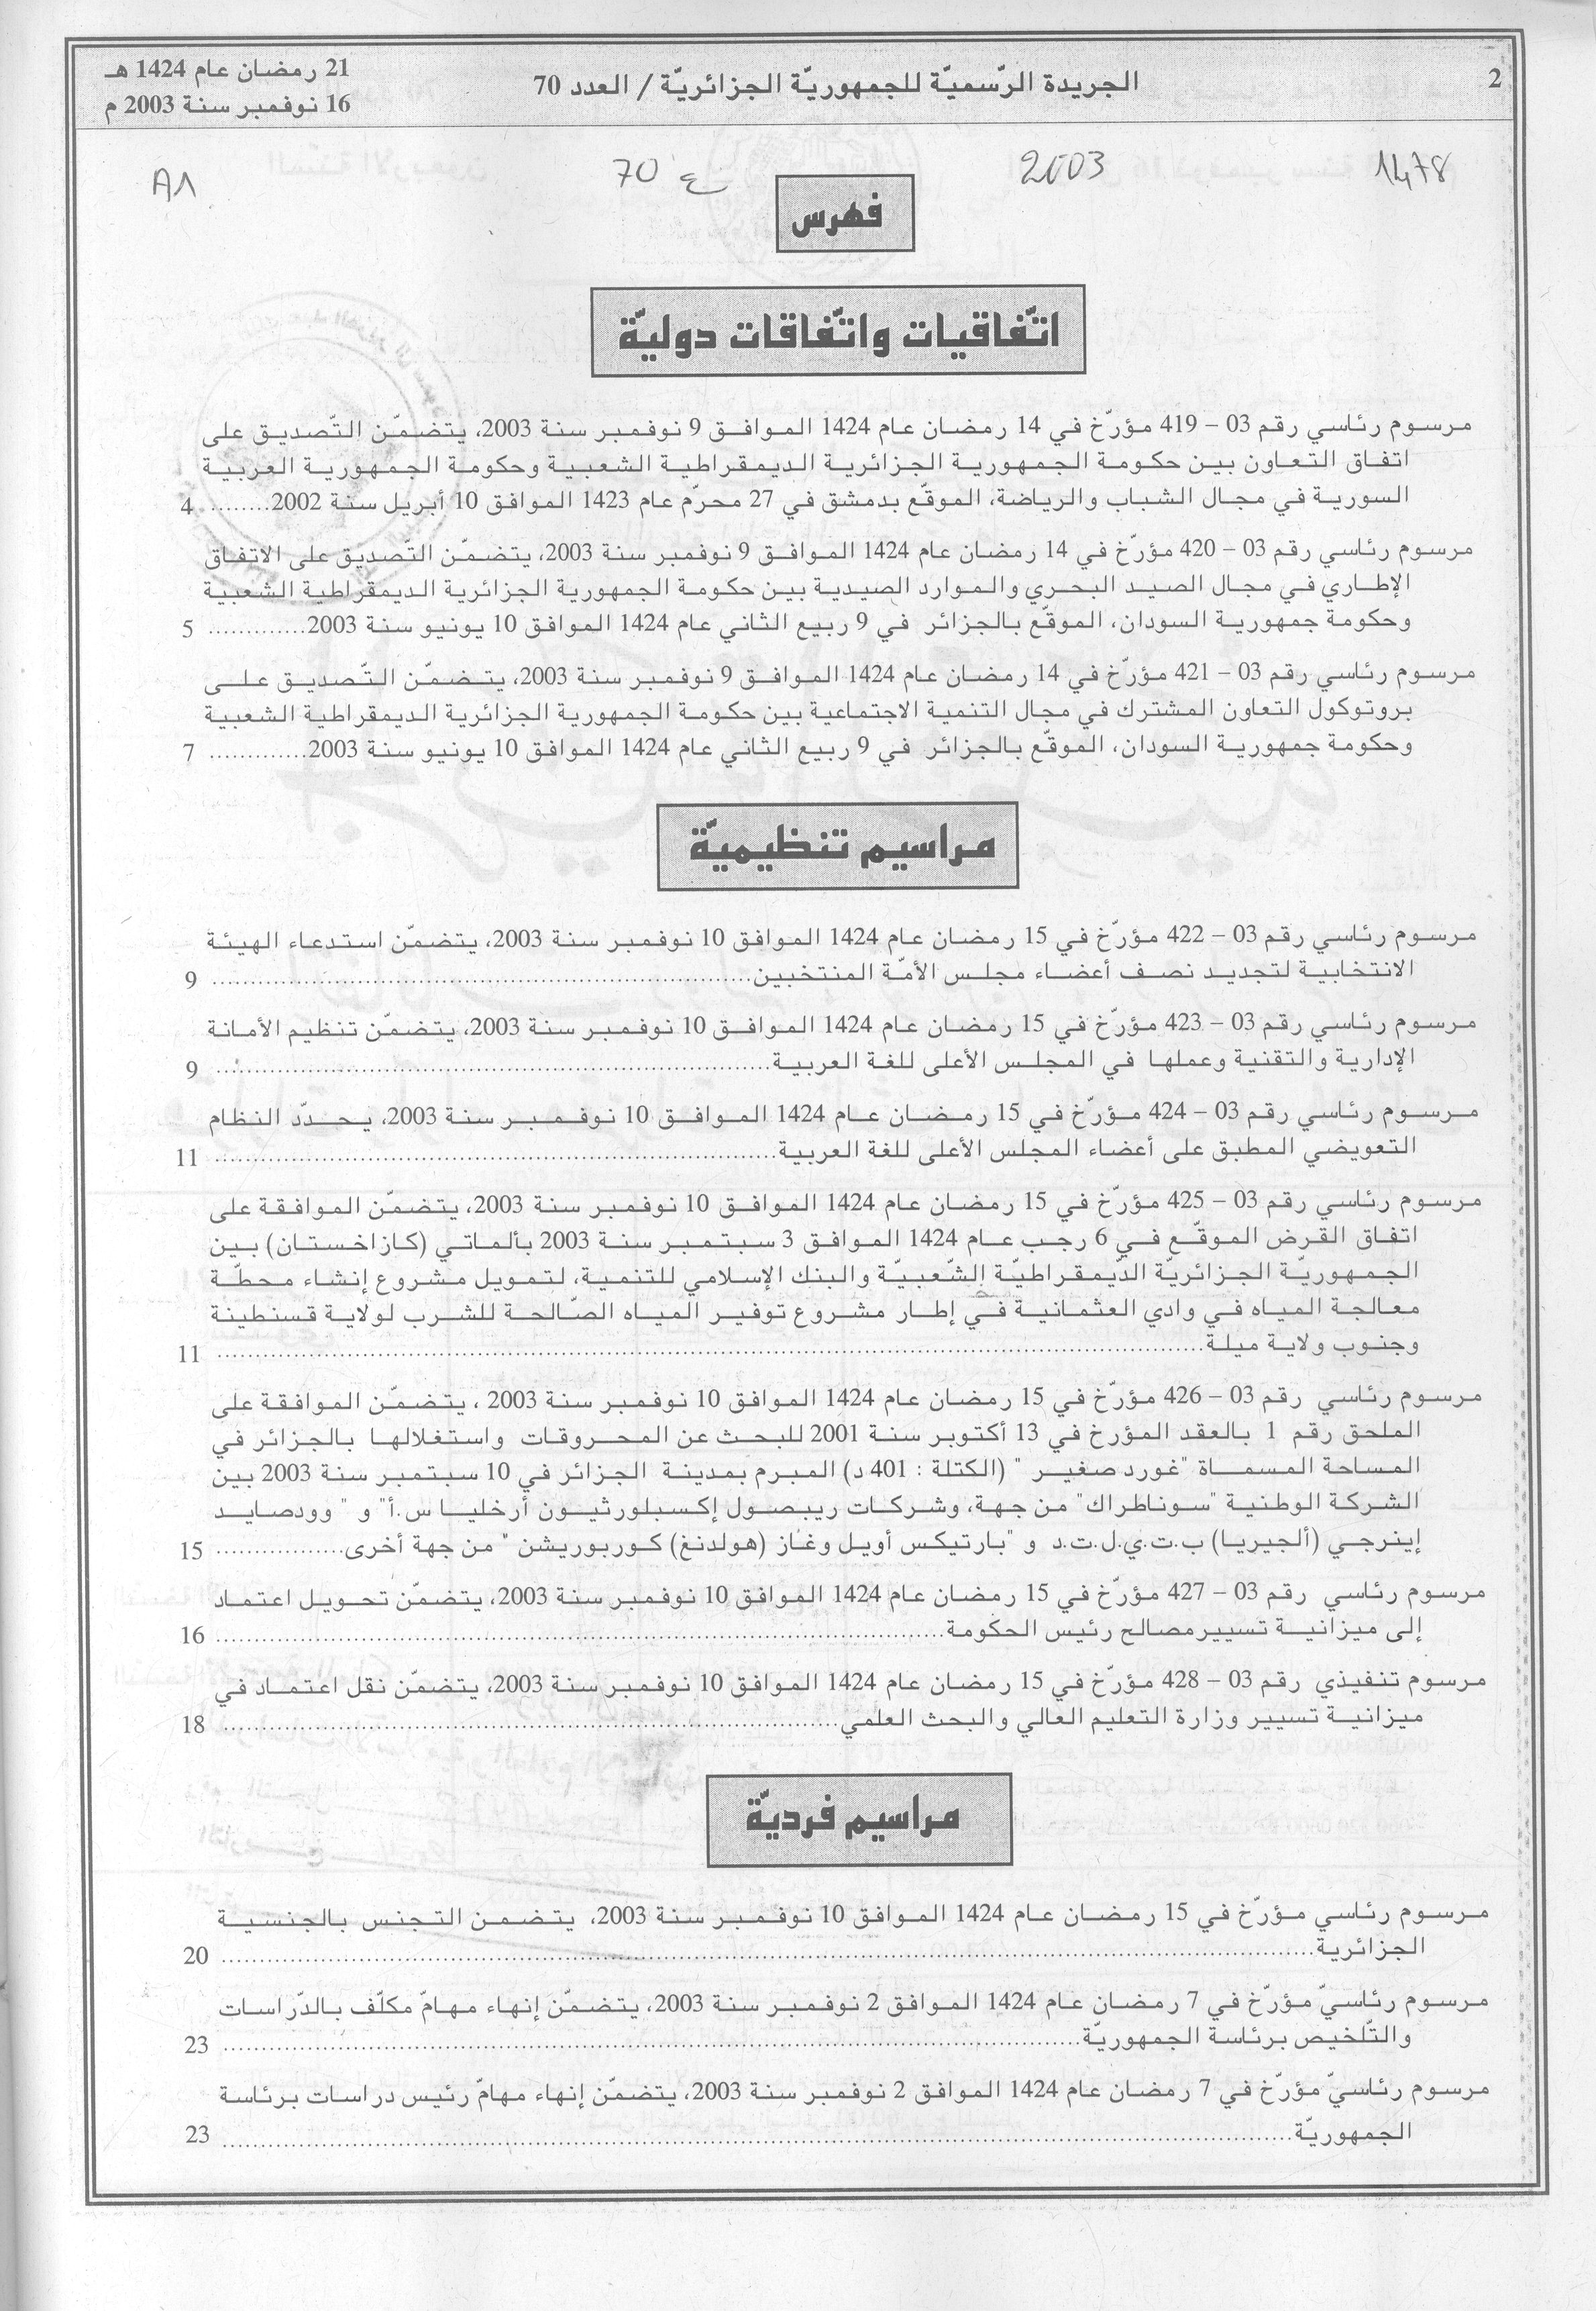 2
الجريدة الرّسميّة للجمهوريّة الجزائريّة / العدد 70
21 رمضان عام 1424 هـ
16 نوفمبر سنة 2003 م
1478
2003
ع 70
A1
فهرس
اتّفاقيات واتّفاقات دوليّة
مرسوم رئاسي رقم 03 – 419 مؤرّخ في 14 رمضان عام 1424 الموافق 9 نوفمبر سنة 2003، يتضمّن التّصديق على
اتفاق التعاون بين حكومة الجمهورية الجزائرية الديمقراطية الشعبية وحكومة الجمهورية العربية
السورية في مجال الشباب والرياضة، الموقّع بدمشق في 27 محرّم عام 1423 الموافق 10 أبريل سنة 2002.......... 4
مرسوم رئاسي رقم 03 – 420 مؤرّخ في 14 رمضان عام 1424 الموافق 9 نوفمبر سنة 2003، يتضمّن التّصديق على الاتفاق
الإطاري في مجال الصيد البحري والموارد الصيدية بين حكومة الجمهورية الجزائرية الديمقراطية الشعبية
وحكومة جمهورية السودان، الموقّع بالجزائر في 9 ربيع الثاني عام 1424 الموافق 10 يونيو سنة 2003............. 5
مرسوم رئاسي رقم 03 – 421 مؤرّخ في 14 رمضان عام 1424 الموافق 9 نوفمبر سنة 2003، يتضمّن التّصديق على
بروتوكول التعاون المشترك في مجال التنمية الاجتماعية بين حكومة الجمهورية الجزائرية الديمقراطية الشعبية
وحكومة جمهورية السودان، الموقّع بالجزائر في 9 ربيع الثاني عام 1424 الموافق 10 يونيو سنة 2003............. 7
مراسيم تنظيميّة
مرسوم رئاسي رقم 03 – 422 مؤرّخ في 15 رمضان عام 1424 الموافق 10 نوفمبر سنة 2003، يتضمّن استدعاء الهيئة
الانتخابية لتجديد نصف أعضاء مجلس الأمّة المنتخبين.................... 9
مرسوم رئاسي رقم 03 – 423 مؤرّخ في 15 رمضان عام 1424 الموافق 10 نوفمبر سنة 2003، يتضمّن تنظيم الأمانة
الإدارية والتقنية وعملها في المجلس الأعلى للغة العربية.................... 9
مرسوم رئاسي رقم 03 – 424 مؤرّخ في 15 رمضان عام 1424 الموافق 10 نوفمبر سنة 2003، يحدّد النظام
التعويضي المطبق على أعضاء المجلس الأعلى للغة العربية.................... 11
مرسوم رئاسي رقم 03 – 425 مؤرّخ في 15 رمضان عام 1424 الموافق 10 نوفمبر سنة 2003، يتضمّن الموافقة على
اتفاق القرض الموقّع في 6 رجب عام 1424 الموافق 3 سبتمبر سنة 2003 بألماتي (كازاخستان) بين
الجمهوريّة الجزائريّة الدّيمقراطيّة الشّعبيّة والبنك الإسلامي للتنمية، لتمويل مشروع إنشاء محطّة
معالجة المياه في وادي العثمانية في إطار مشروع توفير المياه الصّالحة للشرب لولاية قسنطينة
وجنوب ولاية ميلة.................... 11
مرسوم رئاسي رقم 03 – 426 مؤرّخ في 15 رمضان عام 1424 الموافق 10 نوفمبر سنة 2003 ، يتضمّن الموافقة على
الملحق رقم 1 بالعقد المؤرخ في 13 أكتوبر سنة 2001 للبحث عن المحروقات واستغلالها بالجزائر في
المساحة المسماة "غورد صغير " (الكتلة : 401 د) المبرم بمدينة الجزائر في 10 سبتمبر سنة 2003 بين
الشركة الوطنية "سوناطراك" من جهة، وشركات ريبصول إكسبلورثيون أرخليا س.أ" و " وودصايد
إينرجي (ألجيريا) ب.ت.ي.ل.ت.د و "بارتيكس أويل وغاز (هولدنغ) كوربوريشن " من جهة أخرى................. 15
مرسوم رئاسي رقم 03 – 427 مؤرّخ في 15 رمضان عام 1424 الموافق 10 نوفمبر سنة 2003، يتضمّن تحويل اعتماد
إلى ميزانية تسيير مصالح رئيس الحكومة.................... 16
مرسوم تنفيذي رقم 03 – 428 مؤرّخ في 15 رمضان عام 1424 الموافق 10 نوفمبر سنة 2003، يتضمّن نقل اعتماد في
ميزانية تسيير وزارة التعليم العالي والبحث العلمي.................... 18
مراسيم فرديّة
مرسوم رئاسي مؤرّخ في 15 رمضان عام 1424 الموافق 10 نوفمبر سنة 2003، يتضمن التجنس بالجنسية
الجزائرية.................... 20
مرسوم رئاسيّ مؤرّخ في 7 رمضان عام 1424 الموافق 2 نوفمبر سنة 2003، يتضمّن إنهاء مهامّ مكلّف بالدّراسات
والتّلخيص برئاسة الجمهوريّة.................... 23
مرسوم رئاسيّ مؤرّخ في 7 رمضان عام 1424 الموافق 2 نوفمبر سنة 2003، يتضمّن إنهاء مهامّ رئيس دراسات برئاسة
الجمهوريّة.................... 23